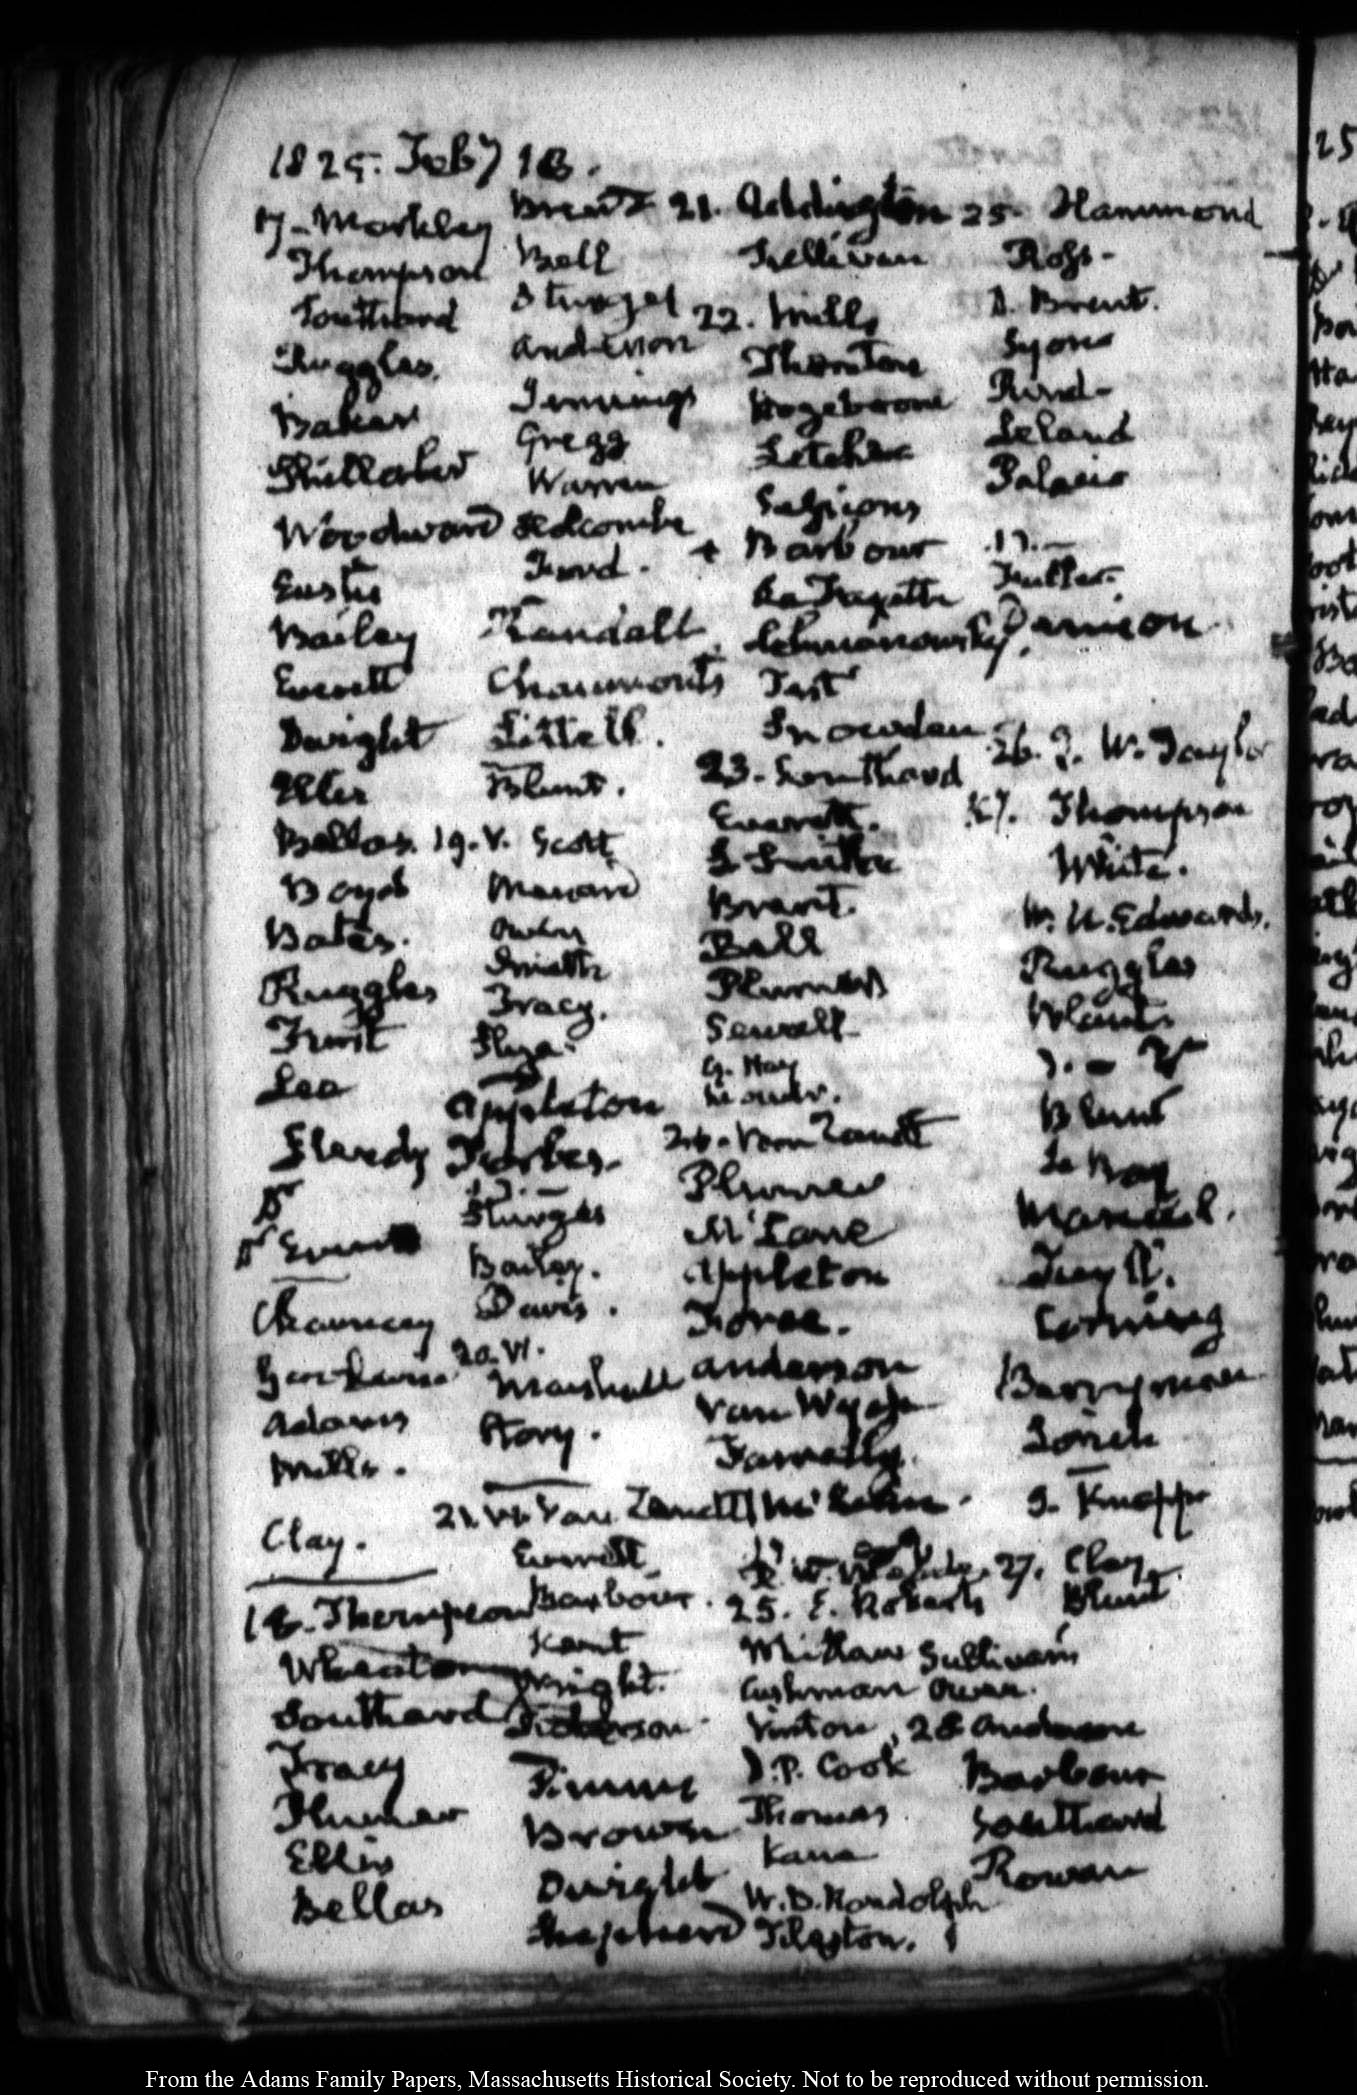 1825. Feby 18.
17 - Markley
Thompson
Southard
Ruggles.
Baker
Shillaber
Woodward
Eustis
Bailey
Everett
Dwight
Ellis
Bellas.
Boyd
Bates.
Ruggles
Trist
Lea
Dr
Dr Everett
Chauncey
Adams
Mills.
Clay.
18. Thompson
Wheaton
Southard
Tracy
Plumer
Ellis
Bellas
Brent
Bell
Anderson
Jennings
Gregg
Warren
Ford.
Kendall
Littell.
Blunt.
19. V. Scott
Owen
Smith
Tracy.
Appleton
Forbes.
Sturges
Bailey.
Davis.
20. VI.
Marshall
Story.
21. VI. Van Zandt
Everett
Barbour.
Kent
Wright.
Dickerson
Timms
Brown
Dwight
Shepherd
21. Addington
Sullivan
22. Mills
Thornton
Hogeboom
Letcher
+ Barbour
La Fayette
Lehmanowsky.
Test
Snowden
23. Southard
Everett.
S. Smith
Brent.
Ball
Plumer
Sewall
G. Hay
24. Van Zandt
Plumer
McLane
Appleton
Force.
Anderson
Van Wyck
Farrelly.
25. E. Roberts
Cushman
Vinton
J. P. Cook
Thomas
Kane
W. B. Randolph
Tileston.
25. Hammond
Ross-
D. Brent.
Lyon
Rind-
Leland
Palacio
17.-
Fuller.
26. J. W. Taylor
27. Thompson
White.
Ruggles
Blunt
Le Roy
Corning
Berryman
27. Clay.
Blunt
Sullivan
Owen.
28 Anderson
Barbour
Southard
Rowan
From the Adams Family Papers, Massachusetts Historical Society. Not to be reproduced without permission.